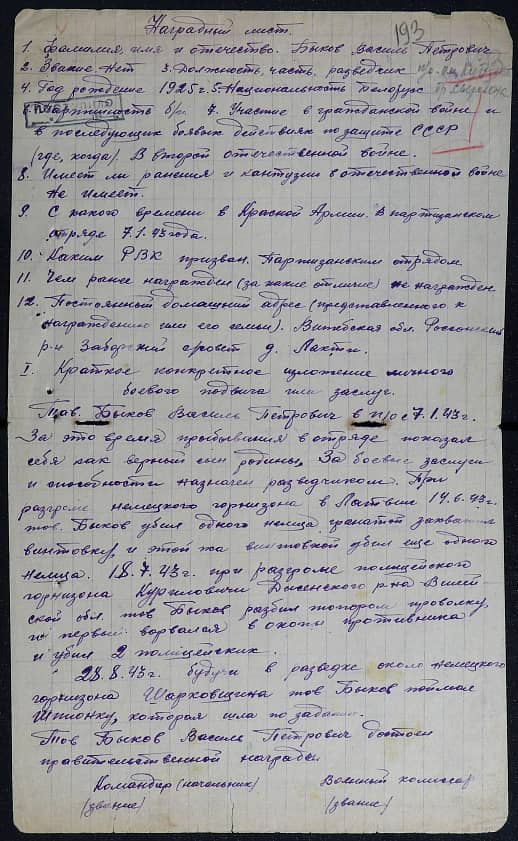 Наградный лист.
193
1. Фамилия, имя и отчество. Быков Василь Петрович
2. Звание. Нет 3. Должность, часть. разведчик
4. Год рождение 1925 г. 5. Национальность Белорус
Партийность б/п 7. Участие в гражданской войне и
в последующих боевых действиях по защите СССР
(где, когда). В второй отечественной войне.
8. Имеет ли ранения и контузии в отечественной войне
Не имеет.
9. С какого времени в Красной Армии. В партизанском
отряде 7.1.43 года.
10. Каким РВК призван. Партизанским отрядом
11. Чем ранее награжден (за какие отличие) не награжден
12. Постоянный домашний адрес (представленного к
награждению или его семьи). Витебская обл. Россонский
р-н Заборский совет д. Лахти.
I. Краткое конкретное изложение личного
боевого подвига или заслуг.
Тов. Быков Василь Петрович в п/о с 7.1.43 г.
За это время пребывания в отряде показал
себя как верный сын родины. За боевые заслуги
и способности назначен разведчиком. При
разгроме немецкого горнизона в Латвии 14.6.43 г.
тов. Быков убил одного немца гранатой захватил
винтовку, и этой жа винтовкой убил еще одного
немца. 18.7.43 г. при разгроме полицейского
горнизона Куриловичи Дисенского р-на Вилей
ской обл. тов Быков разбил топором проволку,
и первый ворвался в окопы противника
и убил 2 полицейских.
28.8.43 г. будучи в разведке около немецкого
горнизона Шарковщина тов Быков поймал
шпионку, которая шла по заданию.
Тов Быков Василь Петрович достоен
правительственной награды
Командир (начальник) Военный комиссар
(звание) (звание)